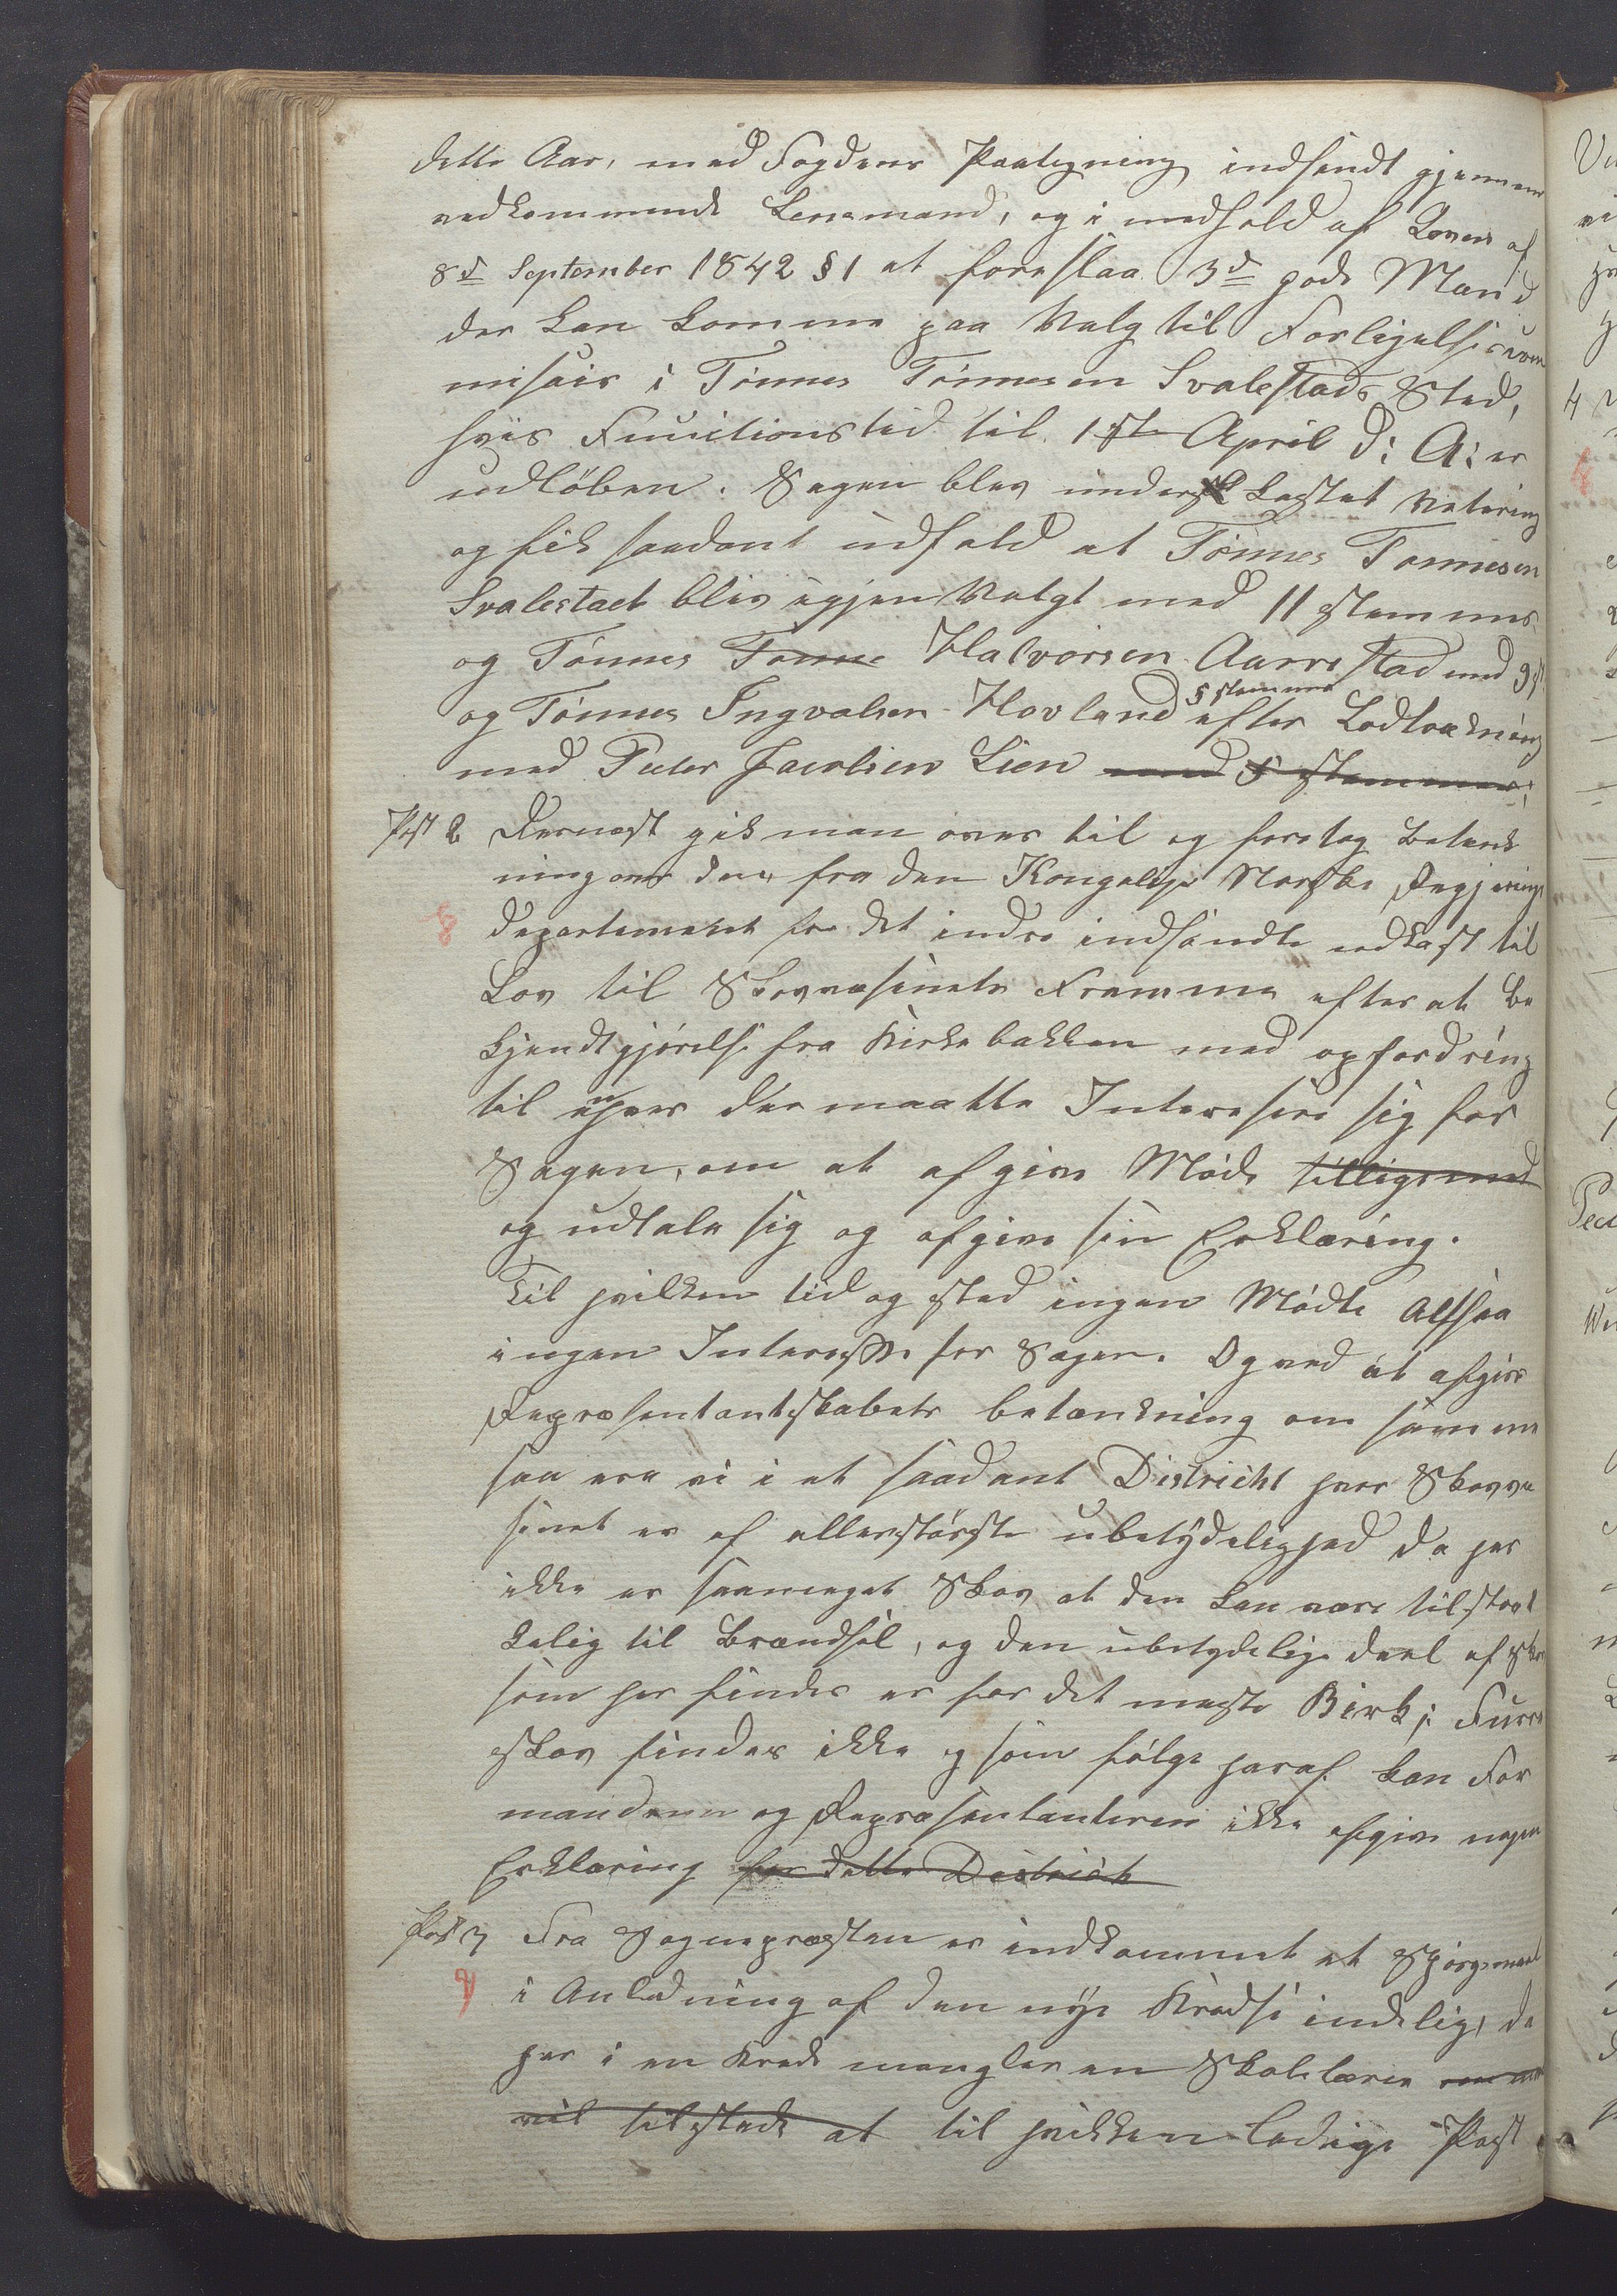 dette Aar, med Fogdens Paategning indsendt gjennem
vedkommende Lensmand, og i medhold af Loven af
8de September 1842 § 1 at foreslaa 3de gode Mænd
der kan komme paa Valg til Forligelsescom
misair i Tönnes Tönnesen Svalestads Sted,
hvis Functionstid til 1ste April d: A: er
udlöben. Sagen blev underkastet Votering
og fik saadant udfald at Tönnes Tönnesen
Svalestad blev igjen Valgt med 11 stemmer
og Tönnes Tönne Halvorsen Aarrestad med 9 st.
og Tönnes Ingvalsen Hovland 5 stemmer efter Lodtrækning
med Peder Jacobsen Lien med 5 stemmer;
Post 2 Dernæst gik man over til og foretog Betænk
ning over den fra den Kongelige Norske Regjerings
8 Departement for det indre indsendte udkast til
Lov til Skovvæsinets Fremme efter at Be
kjendtgjörelse fra Kirkebakken med opfordring
til enhver der maatte Interesere sig for
Sagen, om at afgive Möde tilligemed
og udtale sig og afgive sin Erklæring.
Til hvilken tid og sted ingen Mödte altsaa
ingen Interesse for Sagen. Og ved at afgive
Repræsentantskabets betænkning om samme
saa ere vi i et saadant District hvor Skovvæ
sinet er af allerstörste ubetydelighed da her
ikke er saameget Skov at den kan være tilstræk
kelig til Brændsel, og den ubetydelige deel af Skov
som her findes er for det meste Birk; Furre
skov findes ikke og som fölge heraf kan For
mændene og Repræsentanterne ikke afgive nogen
Erklæring for dette District
Post 3 Fra Sognepræsten er indkommet et Spörgsmaal
9 i Anledning af den nye Kredsi indelig, da
her i en Kreds mangler en Skolelærer
vil tilstede at til hvilken ledige Post